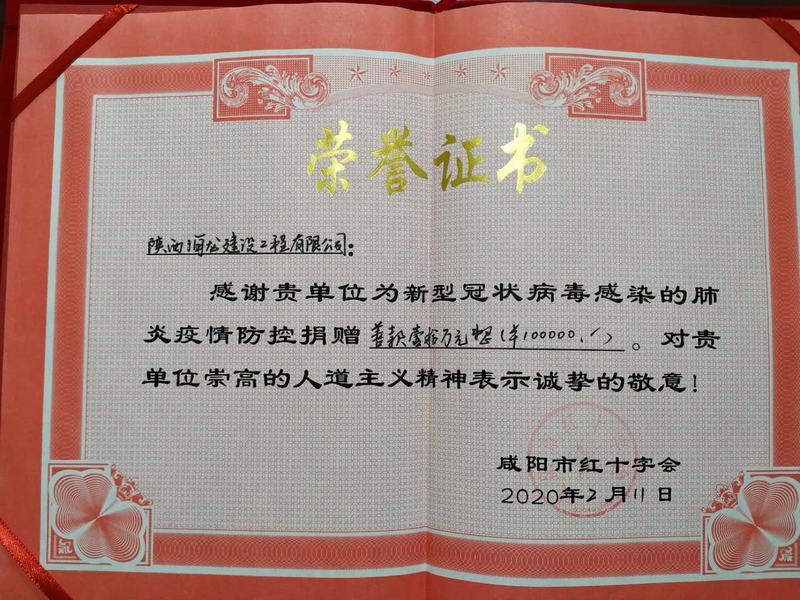 荣誉证书
陕西润龙建设工程有限公司：
感谢贵单位为新型冠状病毒感染的肺
炎疫情防控捐赠 善款壹拾万元整（￥100000.／）。对贵
单位崇高的人道主义精神表示诚挚的敬意！
咸阳市红十字会
2020年2月11日